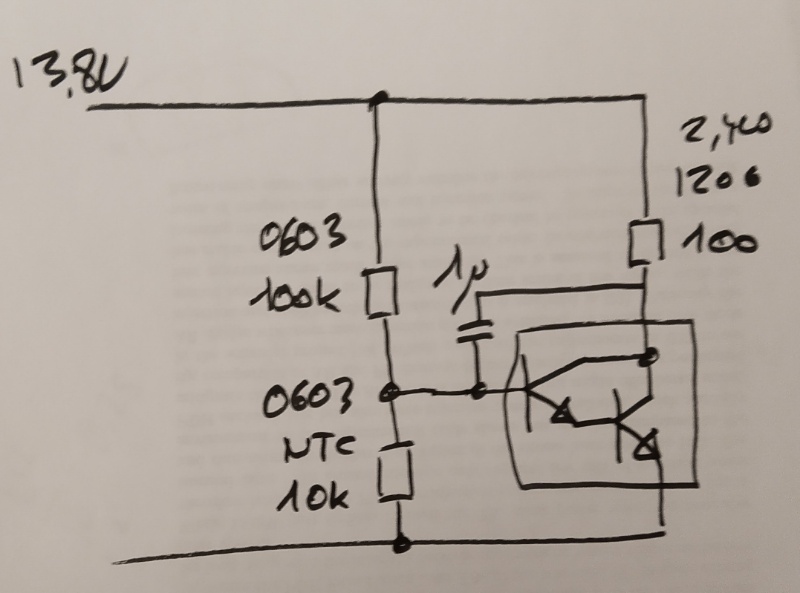 13,8V
2,400
1206
100
0603
100k
1µ
0603
NTC
10k